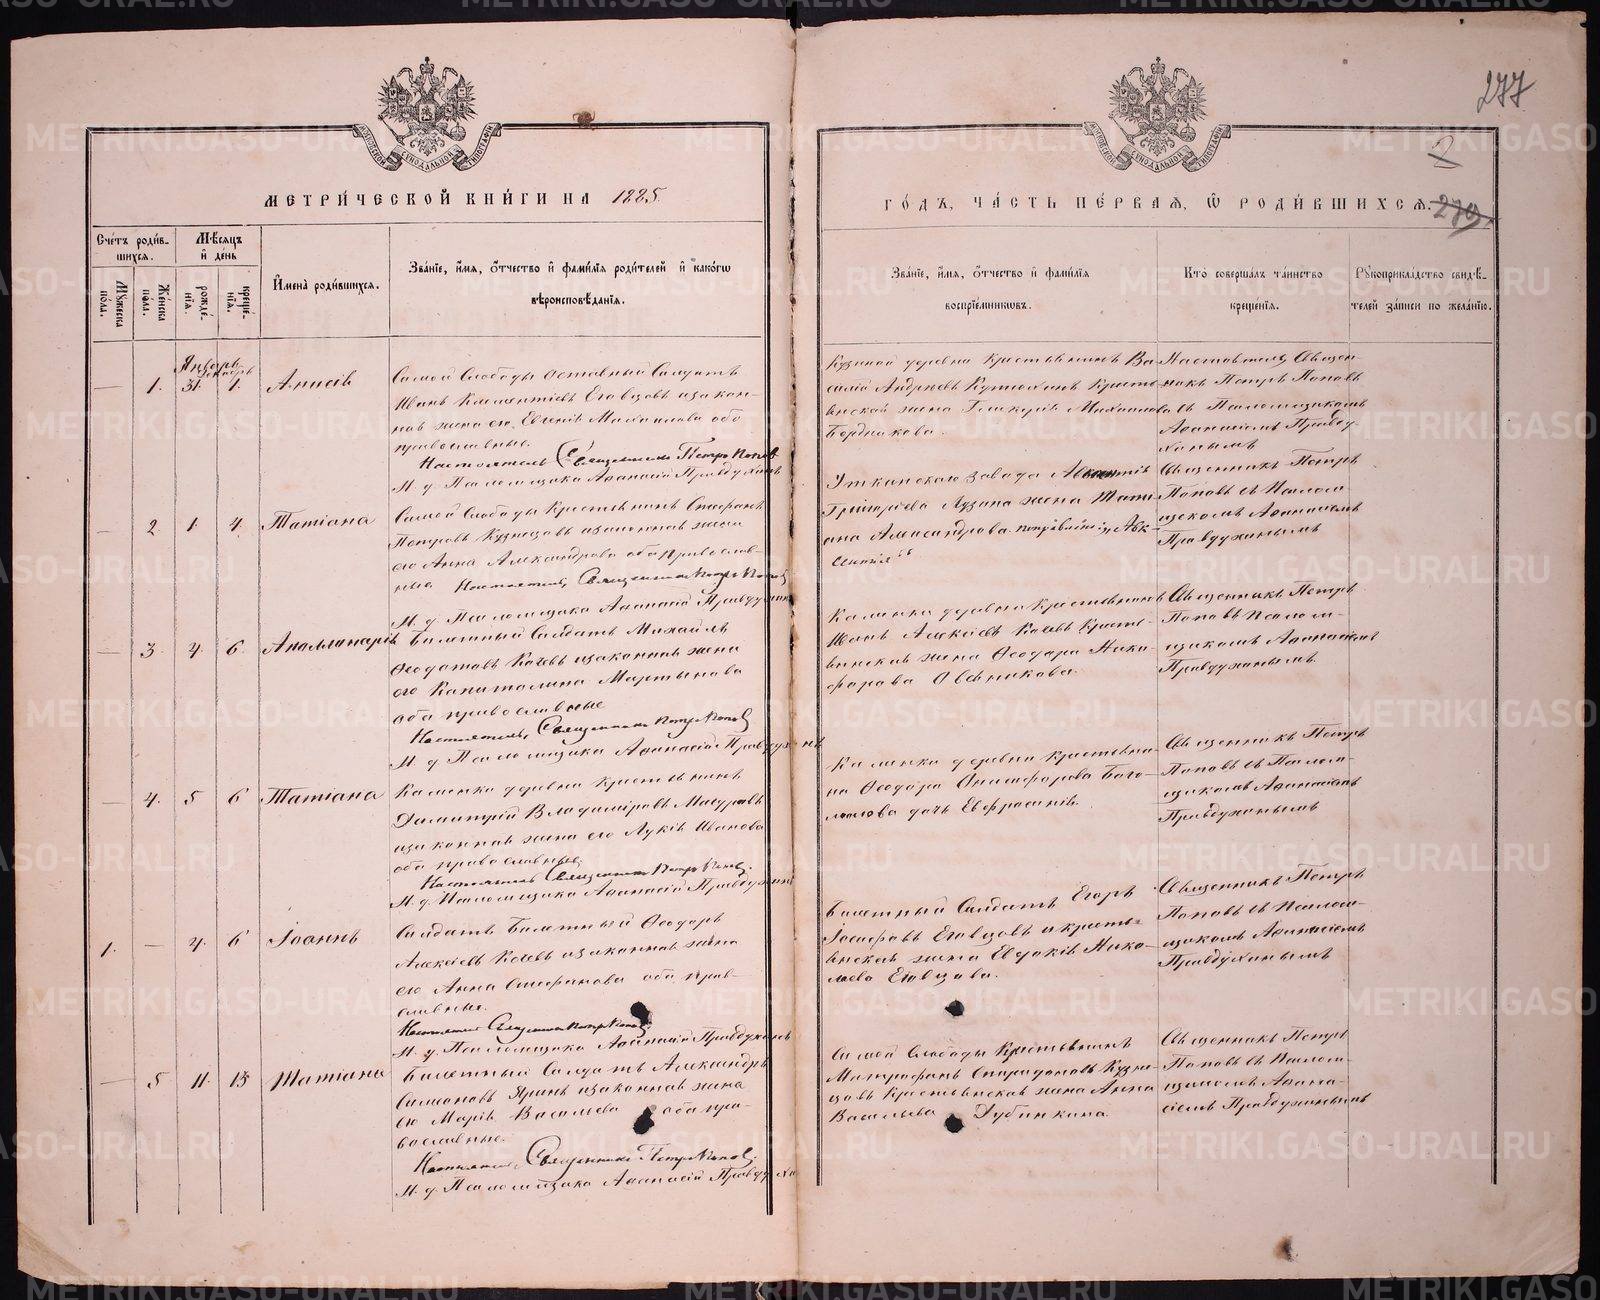 277
2
МОСКОВСКОЙ СѴНОДАЛЬНОЙ ТИПОГРАФІИ
МОСКОВСКОЙ СѴНОДАЛЬНОЙ ТИПОГРАФІИ
МЕТРИ́ЧЕСКОЙ КНИ́ГИ НА 1885.
ГО́ДЪ, ЧА́СТЬ ПЕ́РВАѦ, Ѽ РОДИ́ВШИХСѦ. 279
Сче́тъ роди́в-
шихсѧ.
Мѣ́сѧцъ
и де́нь
Мꙋ́жеска по́ла.
Же́нска по́ла.
рожде́-нїѧ.
креще́-нїѧ.
И҆мена̀ роди́вшихсѧ.
Зва́нїе, и҆́мѧ, ѻ҆́тчество и҆ фами́лїѧ роди́телей и҆ како́гѡ
вѣроисповѣ́данїѧ.
Зва́нїе, и҆́мѧ, ѻ҆́тчество и҆ фами́лїѧ
воспрїе́мникѡвъ.
Кто̀ соверша́лъ та́инство
креще́нїѧ.
Рꙋкоприкла́дство свидѣ́-
телей за́писи по жела́нїю.
Январь
— 1. 31. 1. Анисія
Самой Слободы отставный Солдатъ
Иванъ Климентіевъ Еговцовъ и закон-
ная жена его Евгенія Михайлова оба
православные.
Настоятель Священникъ Петръ Поповъ
И. д. Псаломщика Аѳанасій Правдухинъ
деревни Крестьянинъ Ва-
силій Андреевъ Кутюхинъ Кресть-
янская жена Гликерія Михайлова
Бердникова.
Настоятель Священ-
никъ Петръ Поповъ
съ Псаломщикомъ
Аѳанасіемъ Правду-
хинымъ
— 2 1. 4. Татіана
Самой Слободы Крестьянинъ Стефанъ
Петровъ Кузнецовъ и законная жена
его Анна Александрова оба православ-
ные Настоятель, Священникъ Петръ Поповъ
И. д. Псаломщика Аѳанасій Правдухинъ
Уткинскаго Завода
Григорьева Лузина жена Тати-
ана Александрова.
Священникъ Петръ
Поповъ съ Псалом-
щикомъ Аѳанасіемъ
Правдухинымъ
— 3 4. 6. Аполлинарія
Билетный Солдатъ Михаилъ
Ѳеодотовъ Кочевъ и законная жена
его Капиталина Мартынова
оба православные
Настоятель, Священникъ Петръ Поповъ
И. д. Псаломщика Аѳанасій Правдухинъ
Каменки деревни Крестьянинъ
Иванъ Алексіевъ Кочевъ Кресть-
янская жена Ѳеодора Ники-
форова Овчинникова.
Священникъ Петръ
Поповъ Псалом-
щикомъ Аѳанасіемъ
Правдухинымъ.
— 4. 5 6 Татіана
Каменки деревни крестьянинъ
Димитрій Владиміровъ Мазуровъ
и законная жена его Лукія Иванова
оба православные.
Настоятель Священникъ Петръ Поповъ.
И. д. Псаломщика Аѳанасій Правдухинъ
Каменки деревни крестьяни-
на Ѳеодора Онисифорова Бого-
молова дочь Евфросинія.
Священникъ Петръ
Поповъ съ Псалом-
щикомъ Аѳанасіемъ
Правдухинымъ
1. — 4. 6 Іоаннъ
Солдатъ Билетный Ѳеодоръ
Алексіевъ Кочевъ и законная жена
его Анна Стефанова оба прав-
славные.
Настоятель Священникъ Петръ Поповъ
И. д. Псаломщика Аѳанасій Правдухинъ
Билетный Солдатъ Егоръ
Іосифовъ Еговцовъ и кресть-
янская жена Евдокія Нико-
лаева Еговцова.
Священникъ Петръ
Поповъ съ Псалом-
щикомъ Аѳанасіемъ
Правдухинымъ
— 5 11. 13 Татіана
Билетный Солдатъ Александръ
Симоновъ Яринъ и законная жена
его Марія Васильева оба пра-
вославные.
Настоятель, Священникъ Петръ Поповъ.
И. д. Псаломщика Аѳанасій Правдухинъ
Самой Слободы Крестьянинъ
Митрофанъ Спиридоновъ Кузне-
цовъ Крестьянская жена Анна
Васильева Дубинкина.
Священникъ Петръ
Поповъ съ Псалом-
щикомъ Аѳана-
сіемъ Правдухинымъ
METRIKI.GASO-URAL.RU